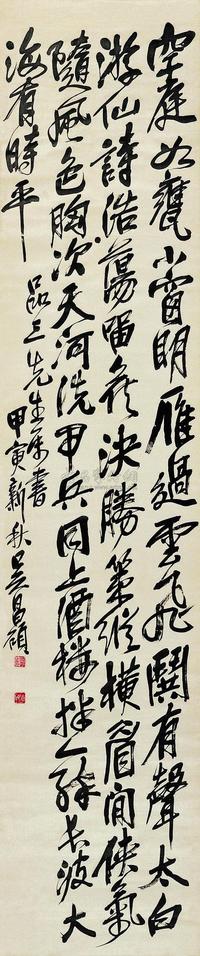 空庭如甕小窗明雁過雲飛鬪有聲太白
游仙詩浩蕩留侯決勝策縱橫眉間俠氣
隨風色胸次天河洗甲兵同上酒樓拚一醉長波大
海有時平
品三先生屬書
甲寅新秋吳昌碩